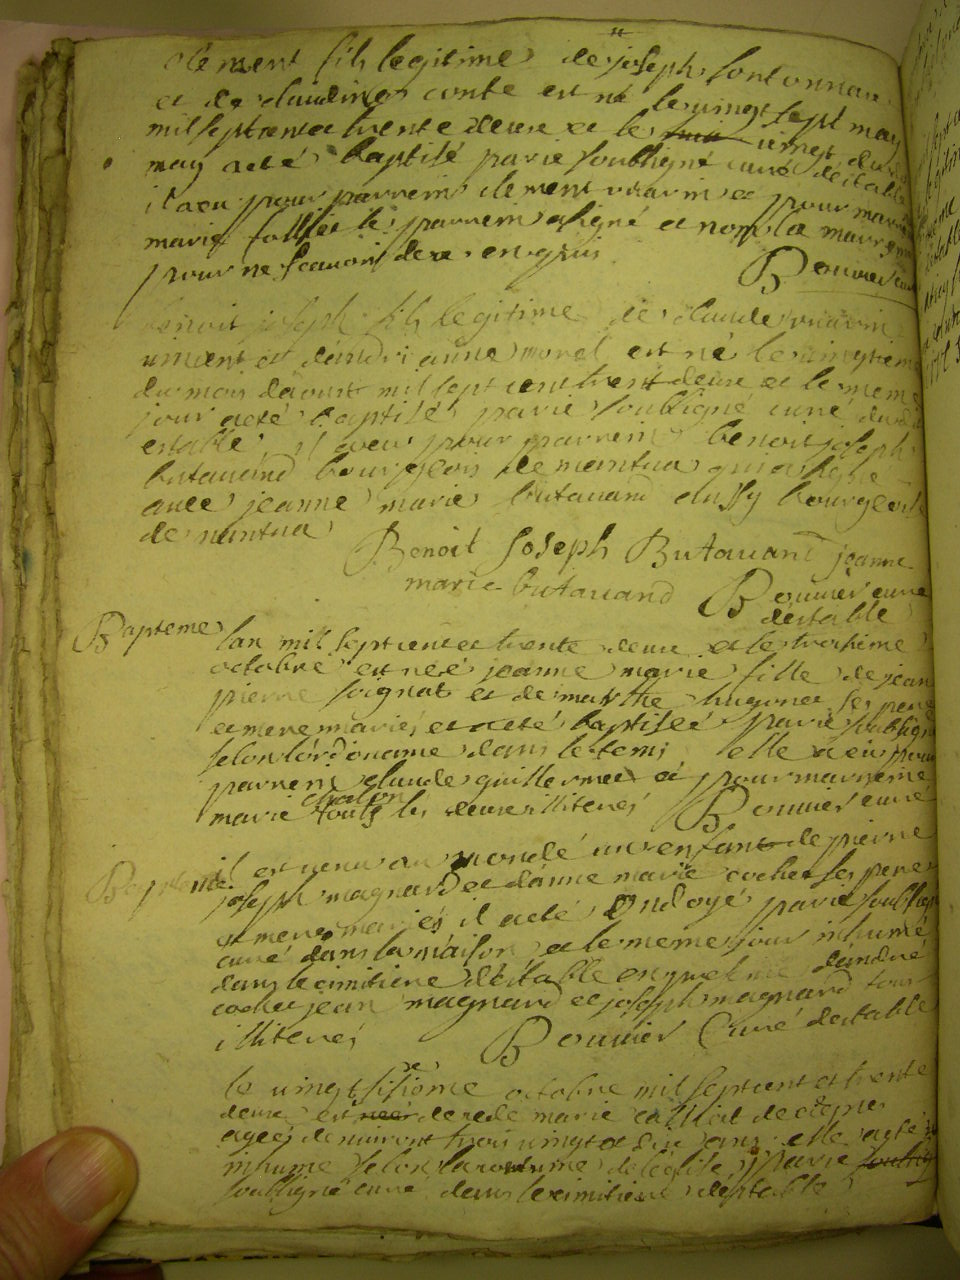 clement fils legitime de joseph sontonnax
et de claudine conte est né le vingt sept may
mil sept cent et trente deux et le vingt
may a eté baptisé par ie soubsigné curé destable
il a eu pour parrein clement vuarin et pour marr
marie le parrein a signé et non la marreine
pour ne scauoir de ce enquis
Bouuier curé
benoit joseph fils legitime de claude vuarin
uincent et dandri anne morel est né le vingtiem
du mois daoust mil sept cent trent deux et le meme
jour a eté baptisé par ie soubsigné curé dudit
estable il a eu pour parrein benoit joseph
butauand bourgeois de nantua qui a signe
auec jeanne marie butauand aussy bourgeoise
de nantua
Benoit Joseph Butauant jeanne
marie butauand Bouuier cure
destable
Bapteme lan mil sept cent et trente deux et le troisieme
octobre est neé jeanne marie fille de jean
pierre soignat et de marthe hugonet ses pere
et mere mariés et a eté baptiseé par ie soubsigné
selon lordonance dans le tems elle a eu pour
parrein claude guillermet et pour marreine
marie chalon touts les deux illiterés Bouuier curé
Bapteme il est venu au monde un enfant de pierre
joseph magnard et danne marie cochet ses pere
et mere mariés il a eté Ondoyé par ie soubsigné
curé dans la maison et le meme jour inhumé
dans le cimitiere destable en presence dandré
cochet jean magnard et joseph magnard tous
illiterés Bouuier Curé destable
le vingt sisieme octobre mil sept cent et trente
deux est neé decede marie de
ageé denuiront trois vingt et dix ans elle a eté
inhume selon la coutume de leglise par ie soubsig
soubsigné curé dans le cimitiere destable